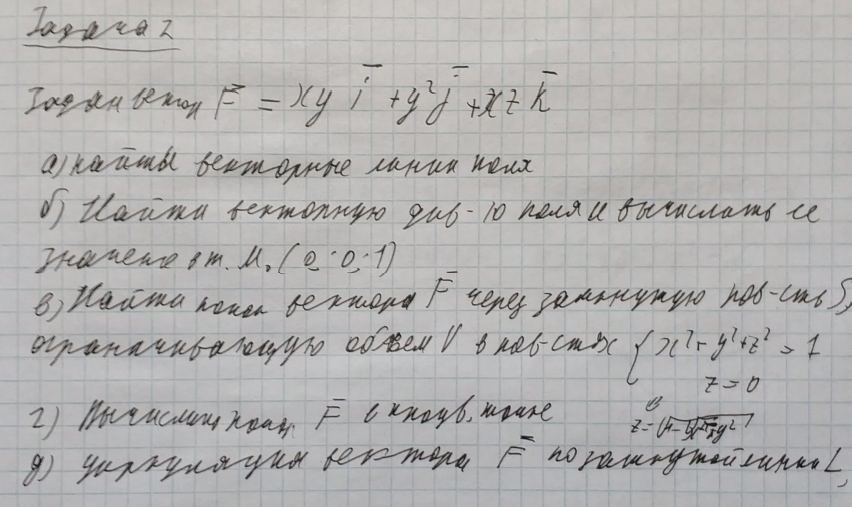 Задача 2
Задан вектор F̄ = xy ī + y² j̄ + xz k̄
а) найти векторные линии поля
б) Найти векторную див-ю поля и вычислить ее
значение в т. М₀ (0; 0; 1)
в) Найти поток вектора F̄ через замкнутую пов-сть S,
ограничивающую объем V в пов-стях { x² + y² + z² = 1
z = 0
г) Вычислить поток F̄
z = √
д) циркуляция вектора F̄ по замкнутой линии L,